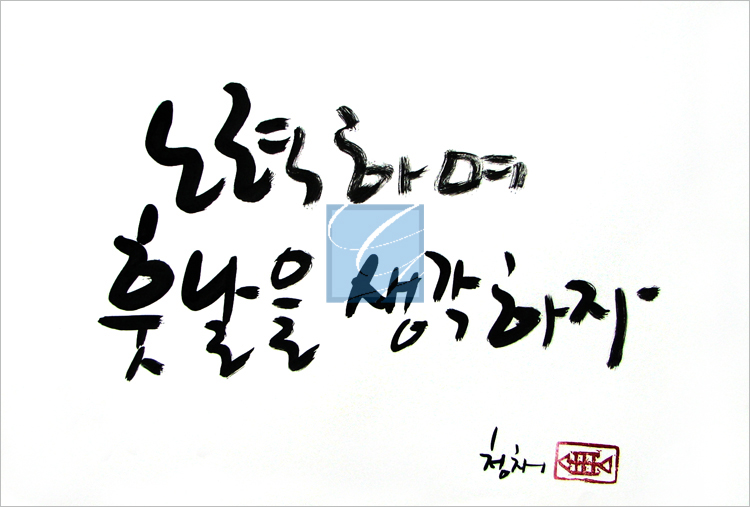 노력하며
훗날을 생각하자
청채